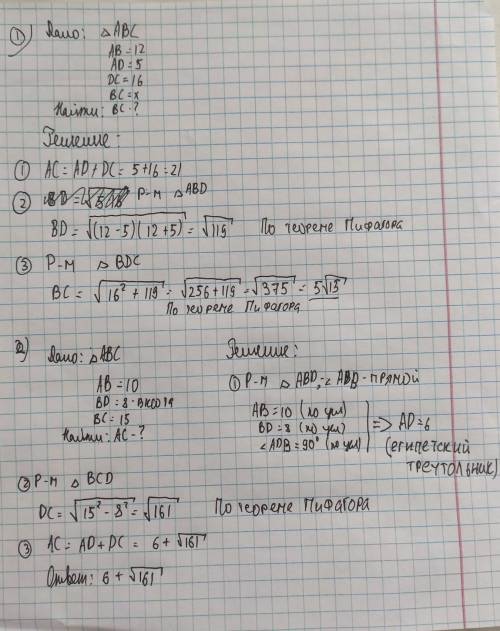 ① Дано: △ABC
AB = 12
AD = 5
DC = 16
BC = x
Найти: BC - ?
Решение:
① AC = AD + DC = 5 + 16 = 21
② Р-м △ABD
BD = √(12 - 5)(12 + 5) = √119 По теореме Пифагора
③ Р-м △BDC
BC = √16² + 119 = √256 + 119 = √375 = 5√15
По теореме Пифагора
2) Дано: △ABC
AB = 10
BD = 8 - высота
BC = 15
Найти: AC - ?
Решение:
① Р-м △ABD, ∠ADB - прямой
AB = 10 (по усл)
BD = 8 (по усл)
∠ADB = 90° (по усл)
=> AD = 6
(египетский
треугольник)
② Р-м △BCD
DC = √15² - 8² = √161 По теореме Пифагора
③ AC = AD + DC = 6 + √161
Ответ: 6 + √161